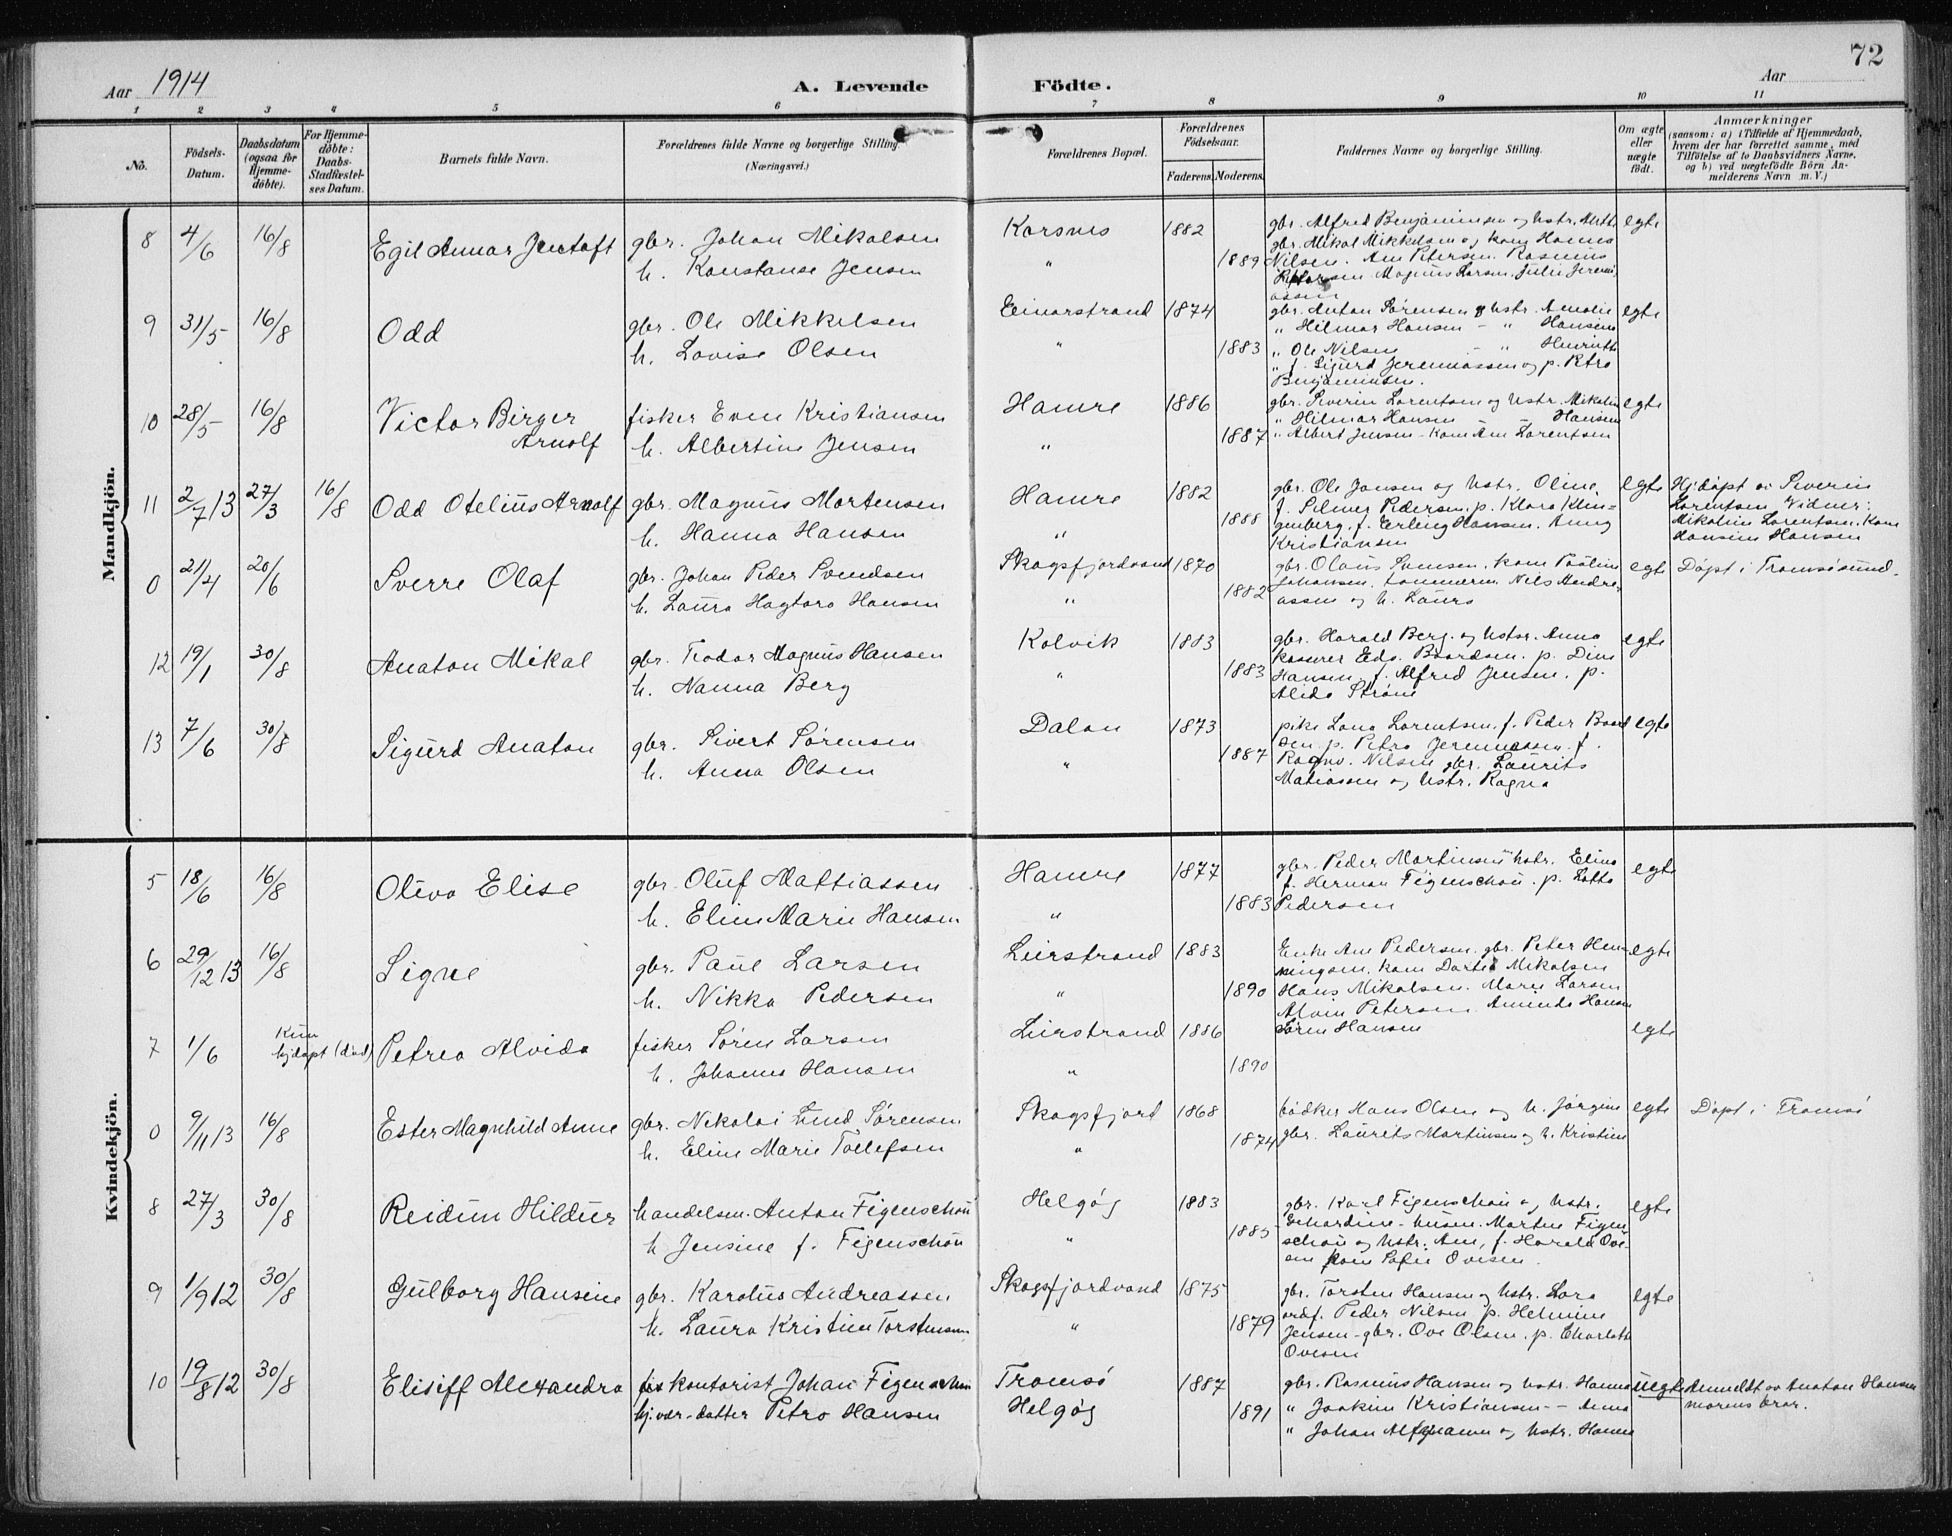 72
Aar 1914 A. Levende Födte. Aar
1 2 3 4 5 6 7 8 9 10 11
No. Födsels-Datum. Daabsdatum (ogsaa for Hjemmedöbte). For Hjemmedöbte: Daabs-Stadfæstelses Datum. Barnets fulde Navn. Forældrenes fulde Navne og borgerlige Stilling. (Næringsvei.) Forældrenes Bopæl. Forældrenes Födselsaar. Faderens. Moderens. Faddernes Navne og borgerlige Stilling. Om ægte eller uægte födt. Anmærkninger (saasom: a) i Tilfælde af Hjemmedaab, hvem der har forrettet samme, med Tilföielse af to Daabsvidners Navne, og b) ved uægtefödte Börn Anmelderens Navn m. V.)
Mandkjön.
8 4/6 16/8 Egil Annar Jentoft gbr. Johan Mikalsen Karsnes 1882 gbr. Alfred Benjaminsen og hstr. egte
gbr. Mikal Mikkelsen og kone Hanna
h. Konstanse Jensen " 1889 Nilsen. Ane Petersen. Rasmus
Larsen Magnus Larsen, Julie Jeremi
assen
9 31/5 16/8 Odd gbr. Ole Mikkelsen Einarstrand 1874 gbr. Anton Sørensen og hstr. Amalie egte
" Hilmar Hansen - " Hansine
h. Lovise Olsen " 1883 " Ole Nilsen - " Henriette
" f. Sigurd Jeremiassen og p. Petra
Benjaminsen.
10 28/5 16/8 Victor Birger Arnolf fisker Even Kristiansen Hamre 1886 gbr. Severin Lorentsen og hstr. Mikaline egte
" Hilmar Hansen Hansine
h. Albertine Jensen " 1887 " Albert Jensen - kone Ane Lorentsen
11 2/7 13 27/3 16/8 Odd Otelius Arnolf gbr. Magnus Mortensen Hamre 1882 gbr. Ole Jansen og hstr. Oline egte Hjdøpt av Severin
f. Hilmer Pedersen. p. Klara Klin- Lorentsen Vidner:
h. Hanna Hansen " 1888 genberg. f. Erling Hansen. Anny Mikaline Lorentsen. Kone
Kristiansen Hansine Hansen
0 21/4 20/6 Sverre Olaf gbr. Johan Peder Svendsen Skogsfjordvand 1870 gbr. Olaus Svensen. kone Pauline egte Døpt i Tromsøsund.
Johansen. tømmerm. Nils Andre-
h. Laura Hagtara Hansen " 1882 assen og h. Laura
12 19/1 30/8 Anaton Mikal gbr. Teodor Magnus Hansen Kalvik 1883 gbr. Harald Berg. og hstr. Anna egte
kaserer Edv. Baardsen. p. Dina
h. Nanna Berg " 1883 Hansen. f. Alfred Jensen. p.
Alida Strøm
13 7/6 30/8 Sigurd Anaton gbr. Sivert Sørensen Dalan 1873 pike Lana Lorentsen. f. Peder Baard egte
sen. p. Petra Jeremiassen. f.
h. Anna Olsen " 1887 Ragnv. Nilsen gbr. Laurits
Matiassen og hstr. Ragna
Kvindekjön.
5 18/6 16/8 Oliva Elise gbr. Oluf Mattiassen Hamre 1877 gbr. Peder Martinsen hstr. Elina egte
f. Herman Figenschou. p. Lotta
h. Eline Marie Hansen " 1883 Pedersen
6 29/12 13 16/8 Signe gbr. Paul Larsen Leirstrand 1883 Enke Ane Pedersen. gbr. Peter Hen- egte
ningsen. kone Dorte Mikalsen
h. Nikka Pedersen " 1890 Hans Mikalsen. Marie Larsen
Alvin Petersen. Amanda Hansen
7 1/6 Kun hjdøpt (død) Petrea Alvida fisker Søren Larsen Leirstrand 1886 Søren Hansen egte
h. Johanna Hansen " 1890
0 9/11 13 16/8 Ester Magnhild Anne gbr. Nikolai Lund Sørensen Skogsfjord 1868 bødker Hans Olsen og h. Jørgine egte Døpt i Tromsø
h. Eline Marie Tollefsen " 1874 gbr. Laurits Martinsen og h. Kristine
8 27/3 30/8 Reidun Hildur handelsm. Anton Figenschou Helgøy 1883 gbr. Karl Figenschou og hstr. egte
Martin Figen
h Jensine f. Figenschou " 1885 schou og hstr. Ane, f. Harald Ove-
sen kone Sofie Ovesen.
9 1/9 12 30/8 Gulborg Hansine gbr. Karolus Andreassen Skogsfjordvand 1875 gbr. Torsten Hansen og hstr. Lara egte
ordf. Peder Nilsen p. Helmine
h. Laura Kristine Torstensen " 1879 Jensen - gbr. Ove Olsen. p. Charlotte
Ovesen
10 19/8 12 30/8 Elisiff Alexandra kontorist Johan Figenschou Tromsø 1887 gbr. Rasmus Hansen og hstr. Hanna uegte Anmeldt av Anaton Hansen
hj.vær. datter Petra Hansen Helgøy 1891 " Joakim Kristiansen - - Anna morens bror.
" Johan og hstr. Hanna